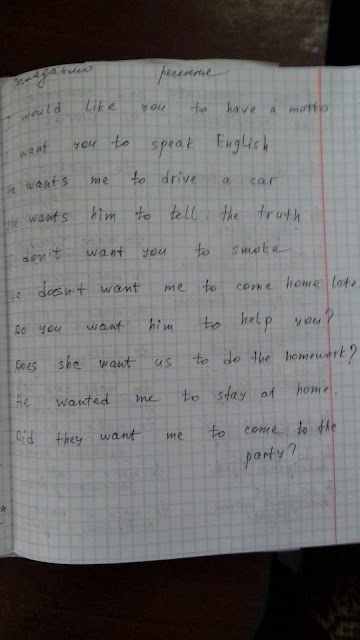 would like you to have a motto
want you to speak English
wants me to drive a car
wants him to tell the truth
I don't want you to smoke
doesn't want me to come home late
Do you want him to help you?
Does she want us to do the homework?
He wanted me to stay at home.
Did they want me to come to the
party?